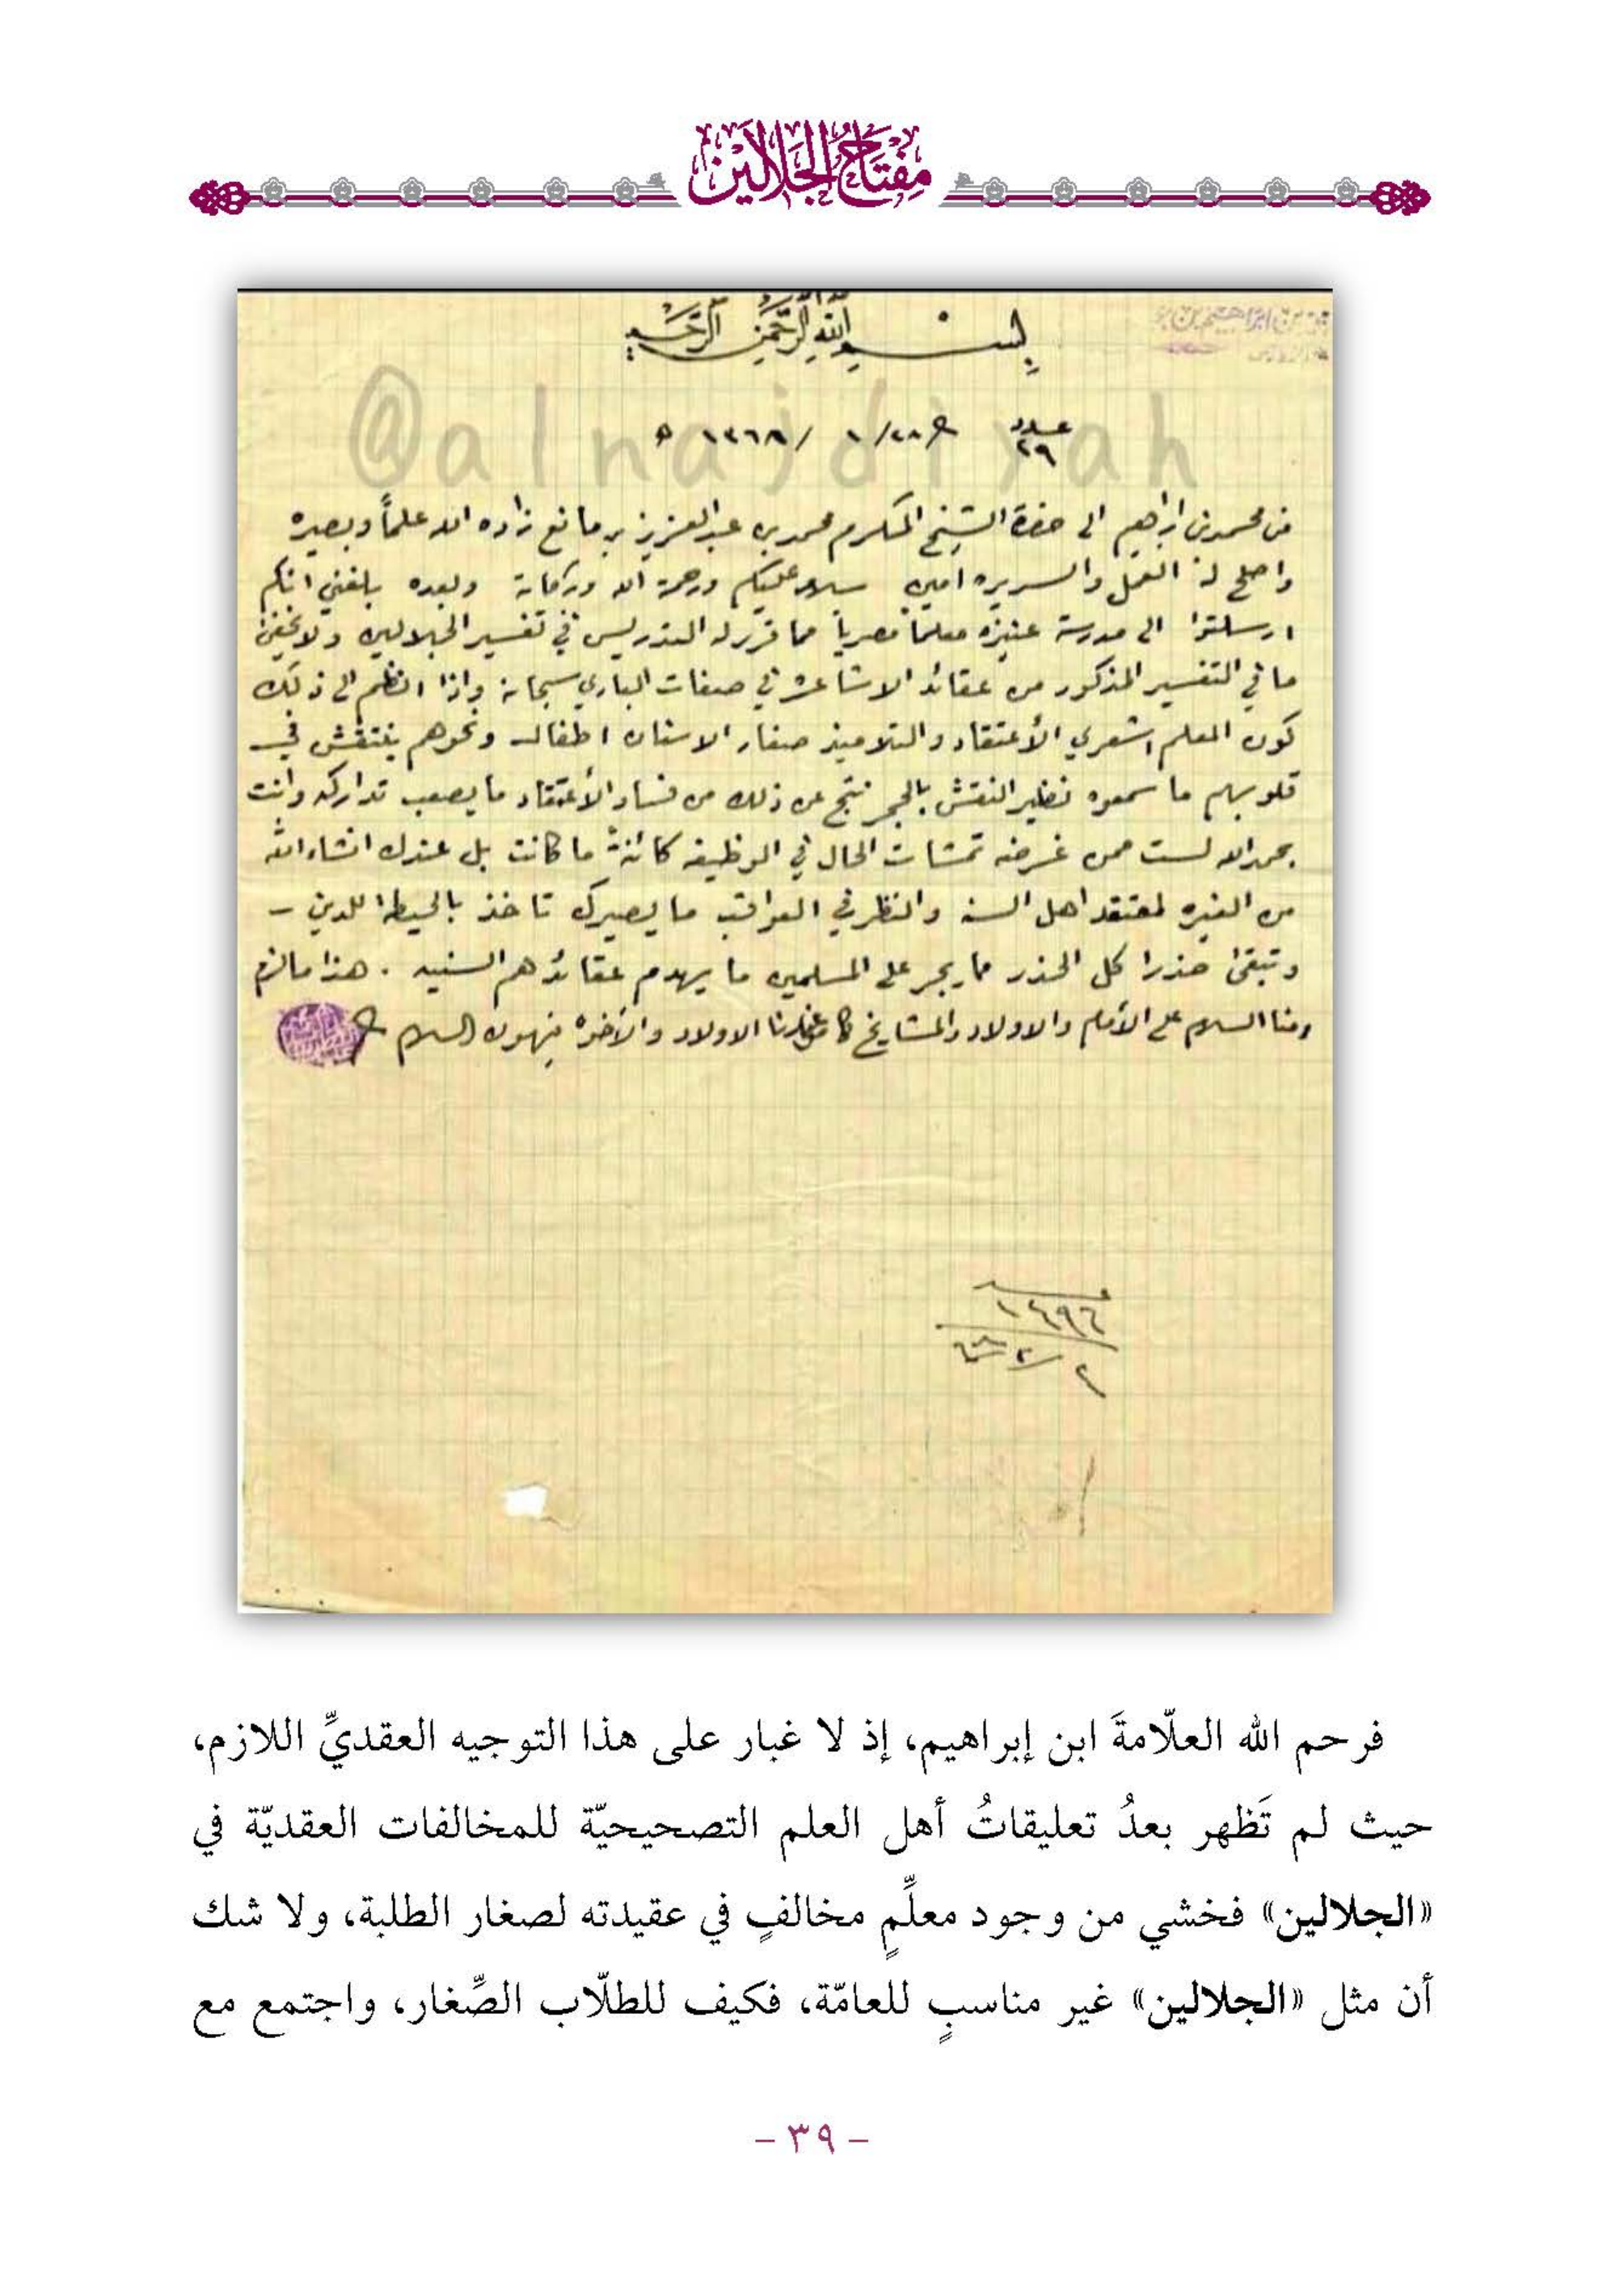 مفتاح الجلالين
بسم الله الرحمن الرحيم
@alnajdiyah
عدد ٢٩ في ٢٨/ ١ /١٣٦٨ ه
من محمد بن ابراهيم الى حضرة الشيخ المكرم محمد بن عبد العزيز بن مانع زاده الله علماً وبصيره
واصلح له العمل والسريره امين سلام عليكم ورحمة الله وبركاته وبعده بلغني انكم
ارسلتوا الى مدرسة عنيزه معلماً مصرياً مما قرر له التدريس في تفسير الجلالين ولا يخفى
ما في التفسير المذكور من عقائد الاشاعره في صفات الباري سبحانه واذا انظم الى ذلك
كون المعلم اشعري الأعتقاد والتلاميذ صغار الاسنان اطفال ونحوهم ينتقش في
قلوبهم ما سمعوه نظير النقش بالحجر نتج عن ذلك من فساد الأعتقاد ما يصعب تداركه وانت
بحمد الله لست ممن غرضه تمشات الحال في الوظيفه كائنةً ما كانت بل عندك انشاء الله
من الغيره لمعتقد اهل السنه والنظر في العواقب ما يصيرك تاخذ بالحيطه للدين –
وتبقى حذرا كل الحذر مما يجر على المسلمين ما يهدم عقائدهم السنيه . هذا مالزم
ومنا السلام على الأمام والاولاد والمشايخ كما من لدنا الاولاد والأخوه ينهون السلام
١٤٩٦
٢/٢
فرحم الله العلّامةَ ابن إبراهيم، إذ لا غبار على هذا التوجيه العقديِّ اللازم،
حيث لم تَظهر بعدُ تعليقاتُ أهل العلم التصحيحيّة للمخالفات العقديّة في
«الجلالين» فخشي من وجود معلِّمٍ مخالفٍ في عقيدته لصغار الطلبة، ولا شك
أن مثل «الجلالين» غير مناسبٍ للعامّة، فكيف للطلّاب الصِّغار، واجتمع مع
- ٣٩ -